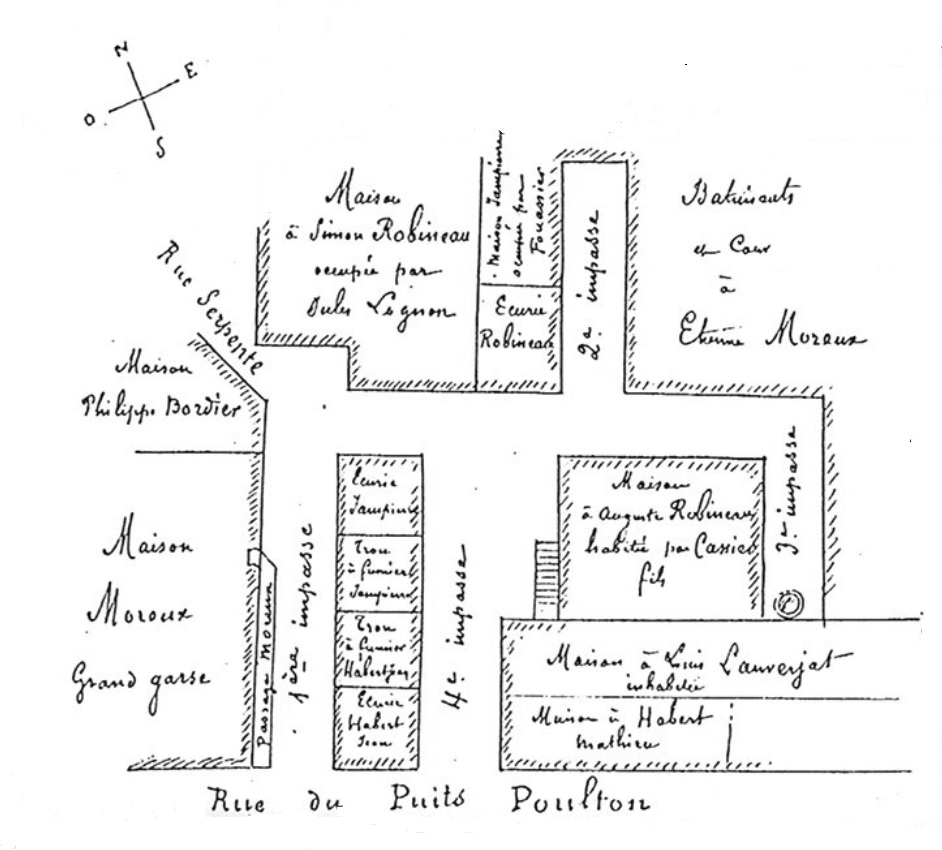 N
E
O
S
Maison
à Simon Robineau
occupée par
Jules Legnon
Maison Jaupierre
occupée par
Fouassier
Ecurie
Robineau
2e. impasse
Batiments
et Cour
à
Etienne Moroux
Rue Serpente
Maison
Philippe Bordier
Maison
Moroux
Grand garse
Passage Moroux
1ère impasse
Ecurie
Trou
à fumier
Trou
à fumier
Habert
Ecurie
Habert
4e. impasse
Maison
à Auguste Robineau
habitée par Cassier
fils
3e impasse
Maison à Louis Lauverjat
inhabitée
Maison à Habert
Mathieu
Rue du Puits Poulton